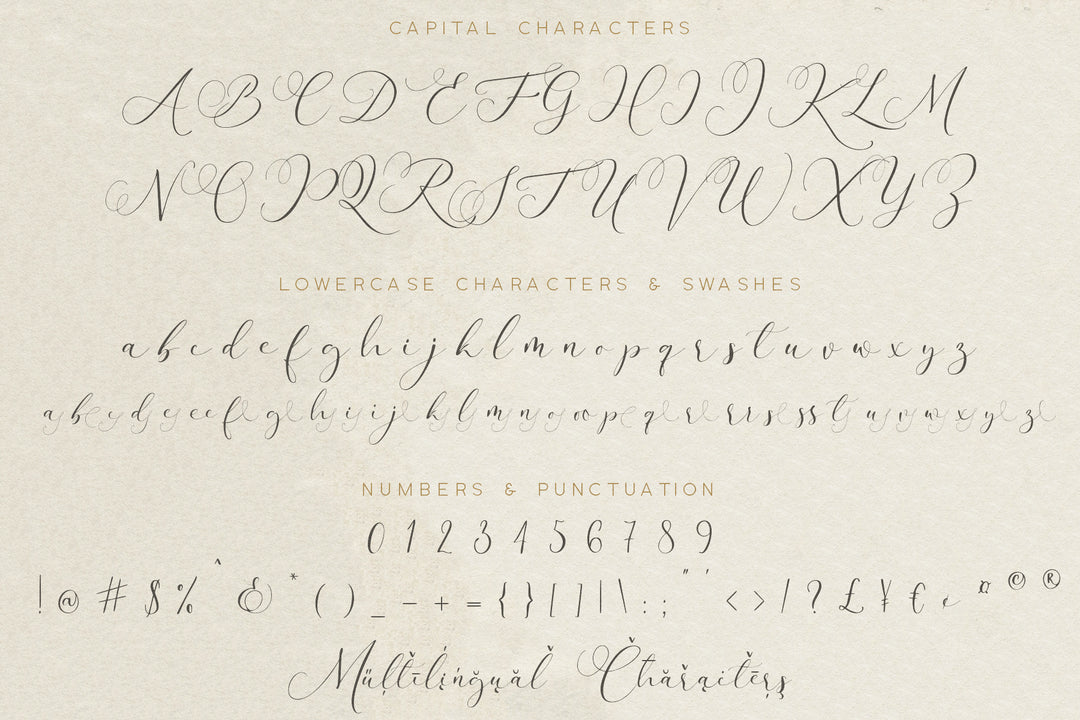 CAPITAL CHARACTERS
A B C D E F G H I J K L M
N O P Q R S T U V W X Y Z
LOWERCASE CHARACTERS & SWASHES
a b c d e f g h i j k l m n o p q r s t u v w x y z
a b c d e ee f g h i i j k l m n o oo p q r r rr s ss t u v w x y z
NUMBERS & PUNCTUATION
0 1 2 3 4 5 6 7 8 9
! @ # $ % ^ & * ( ) _ - + = { } [ ] | \ : ; " ' < > / ? £ ¥ € ¤ © ®